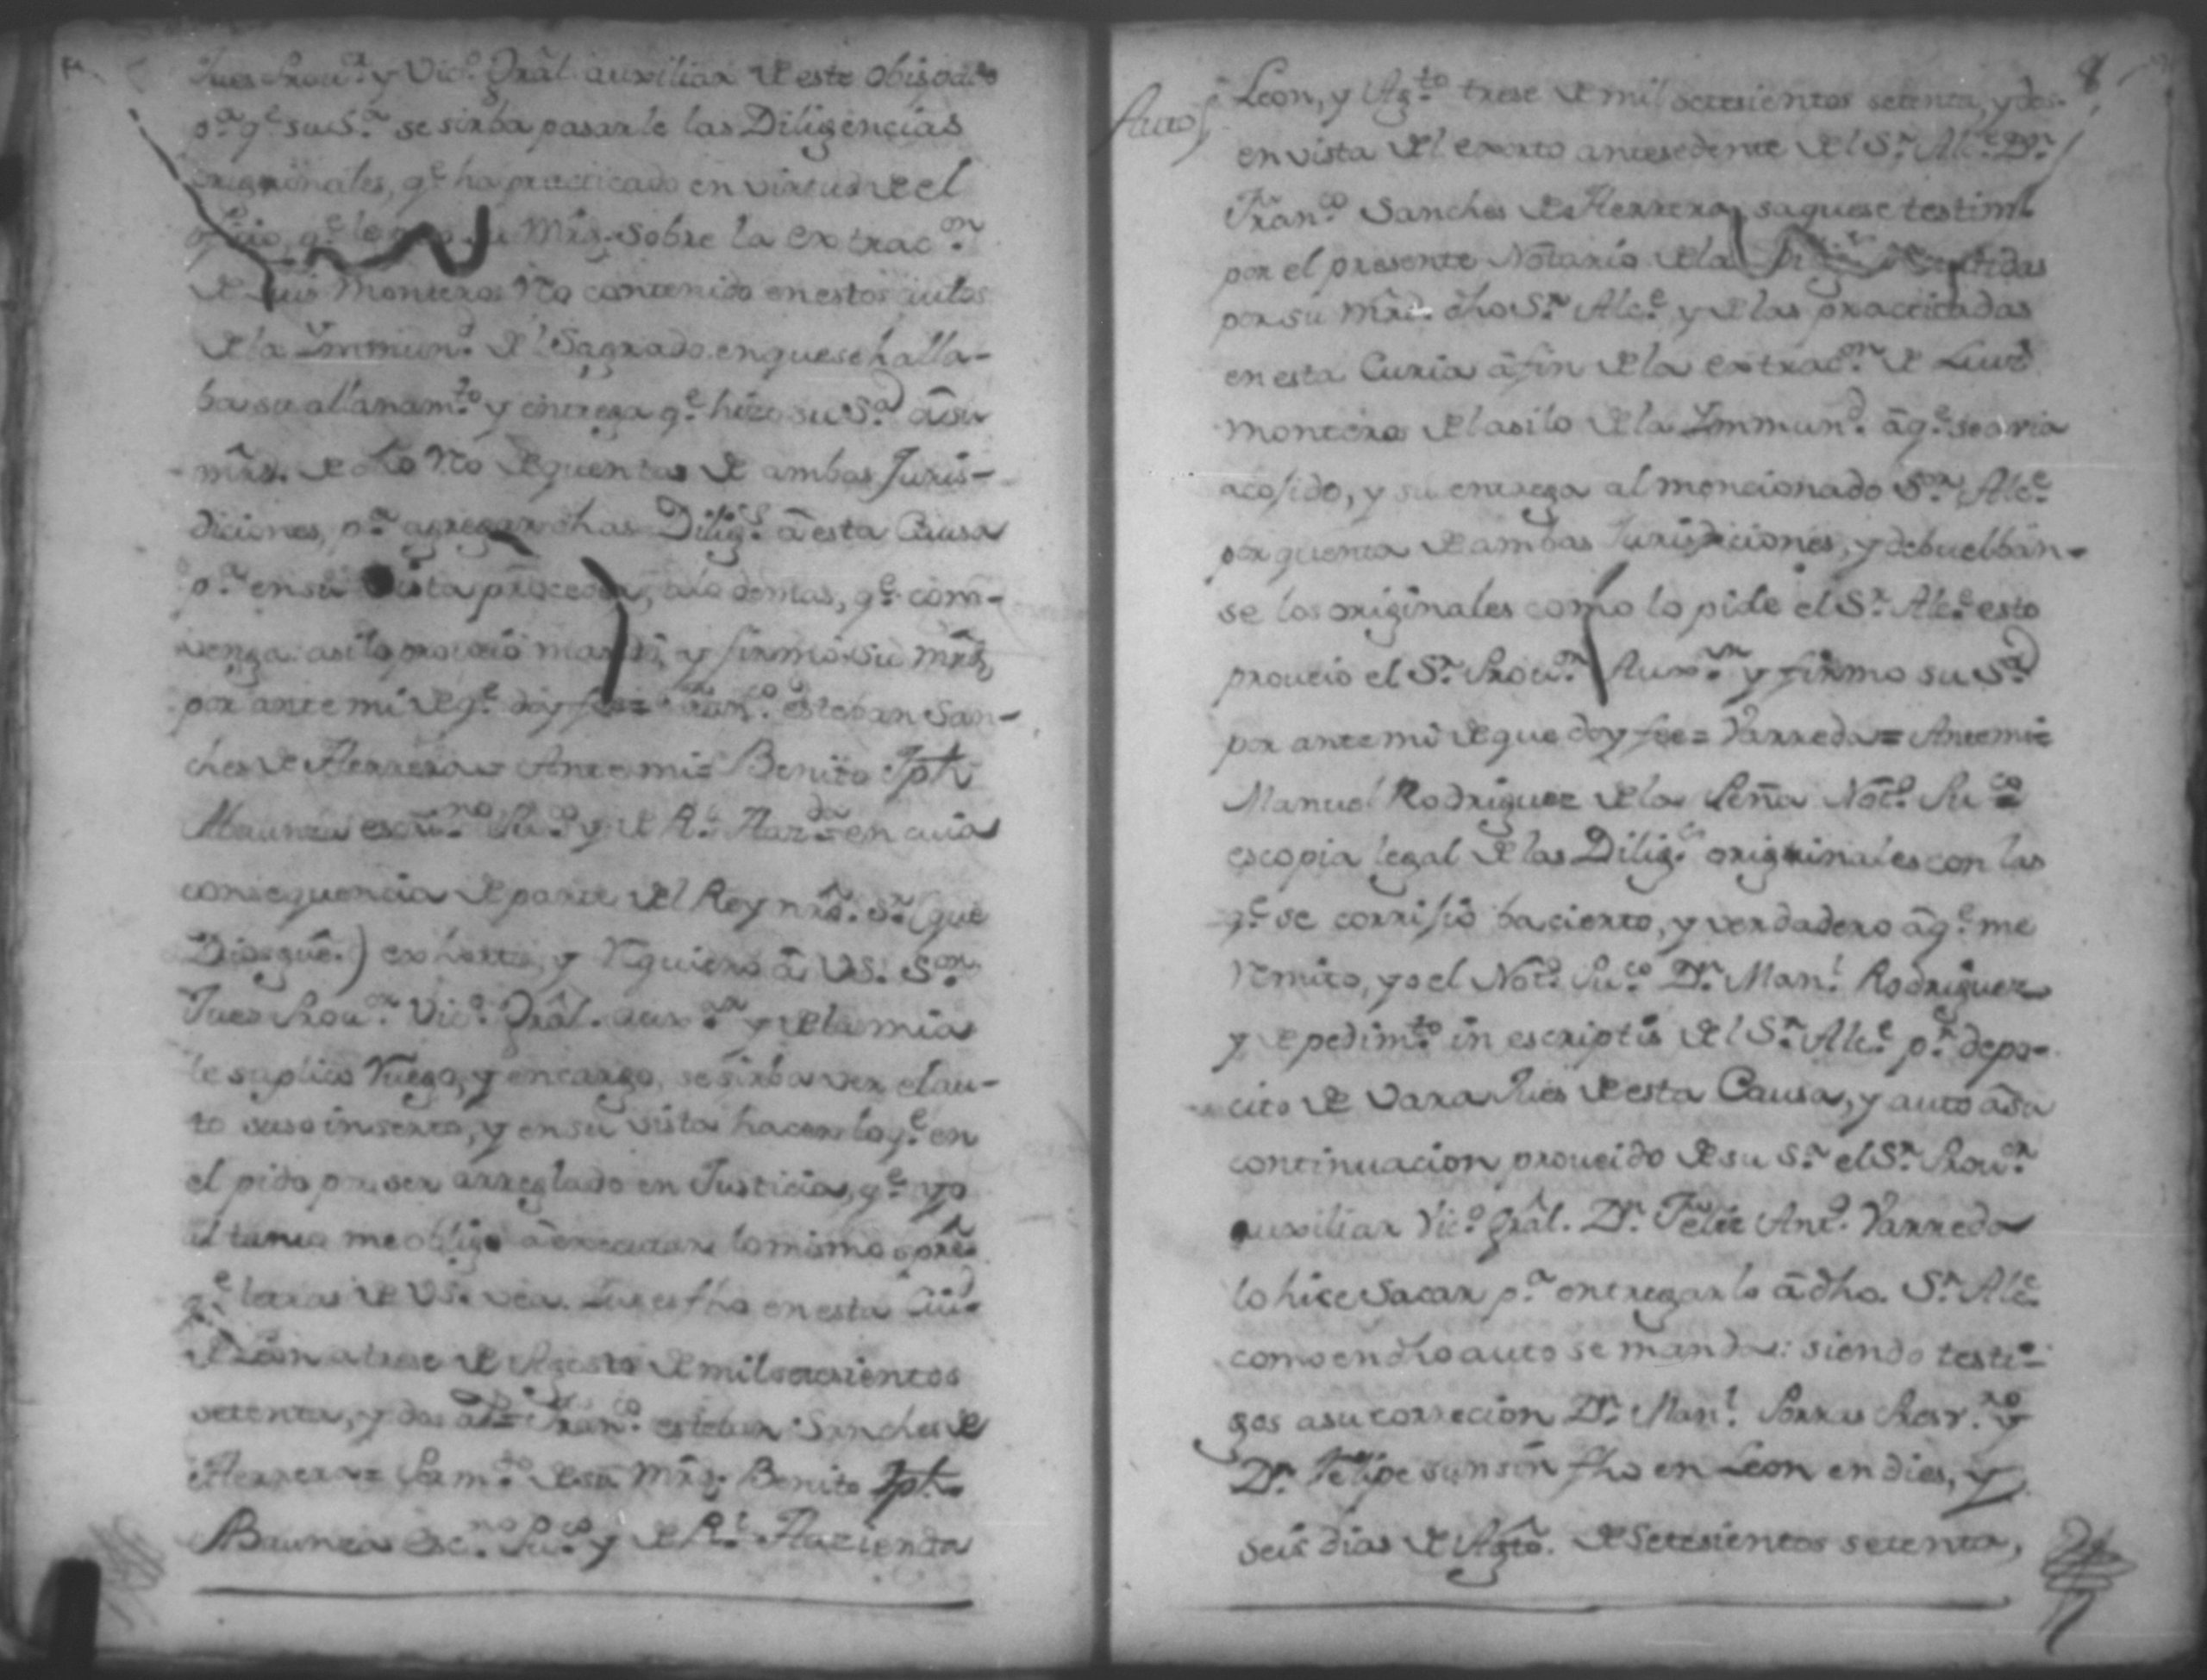 Jues Prov.or y Vic.o Grâl. auxiliar de este obispado
p.a q.e su S.a se sirba pasarle las Diligencias
originales, q.e ha practicado en virtud de el
q.e Mrd. sobre la extrac.on
de Luis Montero Ró contenido en estos autos
de la Immun.d del Sagrado en que se halla-
ba su allanam.to y entrega q.e hizo su S.a â su
mrd. de dho Ró de quenta de ambas Juris-
diciones, p.a agregar dhas Dilig.s â esta Causa
p.a en su vista proceder, a lo demas, q.e com-
venga: asi lo proveió mandó, y firmó su mrd,
por ante mi de q.e doy fee= Fran.co esteban San-
ches de Herrera= Ante mi= Benito Jph
Baunza escri.no Pu.co y de R.l Haz.da en cuia
consequencia de parte de el Rey nrô. S.r (que
Dios gûe.) exhorto, y Requiero â VS. S.or
Jues Prov.or Vic.o Grâl. aux.ar y de la mia
le suplico Ruego, y encargo, se sirba ver el au-
to suso inserto, y en su vista hacer lo q.e en
el pido por ser arreglado en Justicia, q.e yo
al tanto me obligo â executar lo mismo
q.e letras de VS. vea. Que es fho en esta Ciu.d
de Leon a trese de Agosto de mil setesientos
setenta, y dos a.s= Fran.co esteban Sanches de
Herrera= Por m.do de su Mrd. Benito Jph.
Baunza Esc.no Pu.co y de R.l Hazienda
8
Auto
Leon, y Ag.to trese de mil setesientos setenta, y dos.
en vista del exorto antesedente del S.r Alc.e D.n
Fran.co Sanches de Herrera, saquese testim.o
por el presente Notario de la
por su mrd. dho S.r Alc.e y de las practicadas
en esta Curia â fin de la extrac.on de Luis
Montero del asilo de la Immun.d â q.e se avia
acojido, y su entrega al mencionado S.or Alc.e
por quenta de ambas Jurisdiciones, y debuelban-
se los originales como lo pide el S.r Alc.e esto
proveio el S.r Prov.or Aux.ar y firmo su S.a
por ante mi de que doy fee= Varreda= Ante mi=
Manuel Rodriguez de la Peña Not.o Pu.co=
es copia legal de las Dilig.s originales con las
q.e se corrijió ba cierto, y verdadero â q.e me
Remito, yo el Not.o Pu.co D.n Man.l Rodriguez
y de pedim.to in escriptis del S.r Alc.e p.r depo-
cito de vara Jues de esta Causa, y auto â su
continuacion proveido de su S.a el S.r Prov.or
auxiliar Vic.o Grâl. D.n Felix Ant.o Varreda
lo hice sacar p.a entregarlo â dho. S.r Alc.e
como en dho auto se manda: siendo testi-
gos a su correcion D.n Man.l Porras Presv.ro y
D.n Felipe sunsin fho en Leon en dies, y
seis dias de Agto. de setesientos setenta,